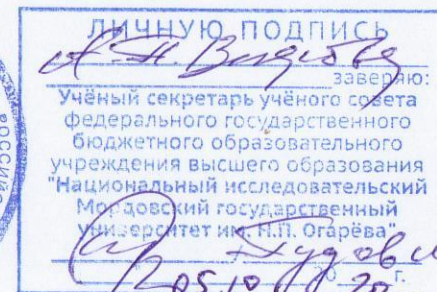 ЛИЧНУЮ ПОДПИСЬ
заверяю:
Учёный секретарь учёного совета
федерального государственного
бюджетного образовательного
учреждения высшего образования
"Национальный исследовательский
Мордовский государственный
университет им. Н.П. Огарёва"
05.10 20 20 г.